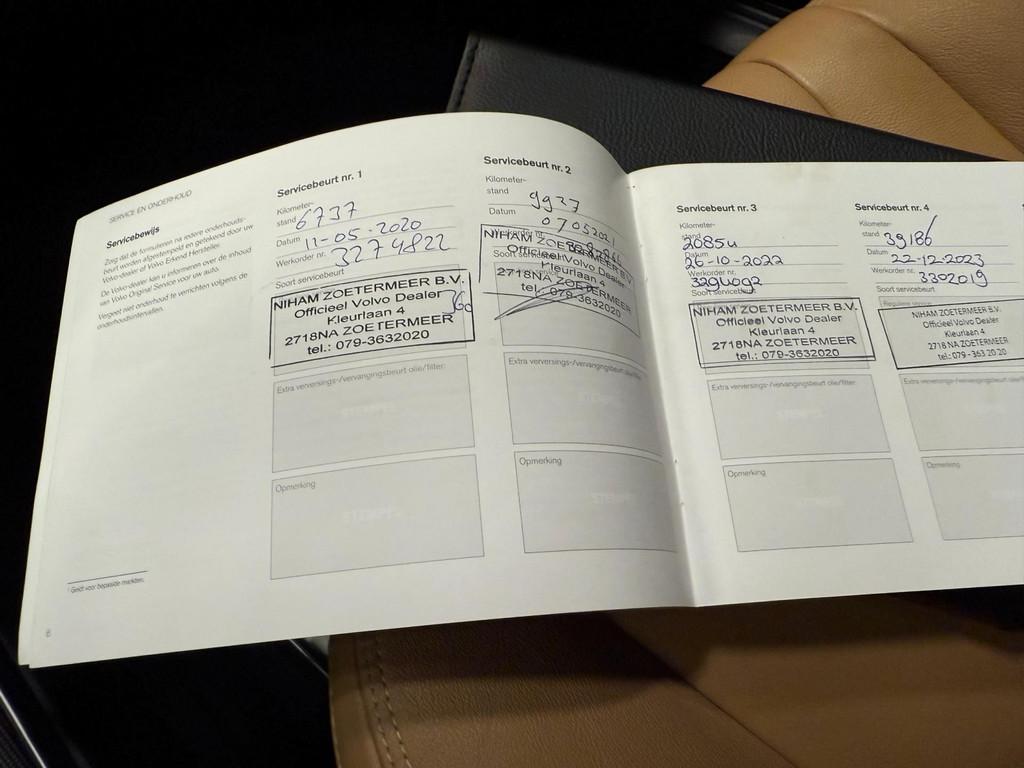 SERVICE EN ONDERHOUD
Servicebewijs
Zorg dat de formulieren na iedere onderhouds-
beurt worden afgestempeld en getekend door uw
Volvo-dealer of Volvo Erkend Hersteller.
De Volvo-dealer kan u informeren over de inhoud
van Volvo Original Service voor uw auto.
Vergeet niet onderhoud te verrichten volgens de
onderhoudsintervallen.
Geldt voor bepaalde markten.
Servicebeurt nr. 1
Kilometer-
stand 6737
Datum 11-05-2020
Werkorder nr. 3274822
Soort servicebeurt
NIHAM ZOETERMEER B.V.
Officieel Volvo Dealer
Kleurlaan 4
2718NA ZOETERMEER
tel.: 079-3632020
Extra verversings-/vervangingsbeurt olie/filter:
Opmerking
Servicebeurt nr. 2
Kilometer-
stand 9927
Datum 07052021
NIHAM ZOETERMEER B.V.
Officieel Volvo Dealer
Kleurlaan 4
2718NA ZOETERMEER
tel.: 079-3632020
Extra verversings-/vervangingsbeurt
Opmerking
Servicebeurt nr. 3
Kilometer-
stand 26854
Datum 26-10-2022
Werkorder nr. 3294092
Soort servicebeurt
NIHAM ZOETERMEER B.V.
Officieel Volvo Dealer
Kleurlaan 4
2718NA ZOETERMEER
tel.: 079-3632020
Extra verversings-/vervangingsbeurt olie/filter:
Opmerking
Servicebeurt nr. 4
Kilometer-
stand 39186
Datum 22-12-2023
Werkorder nr. 3302019
Soort servicebeurt
Reguliere service
NIHAM ZOETERMEER B.V.
Officieel Volvo Dealer
Kleurlaan 4
2718 NA ZOETERMEER
tel.: 079 - 363 20 20
Extra verversings-/vervangingsbeurt
Opmerking